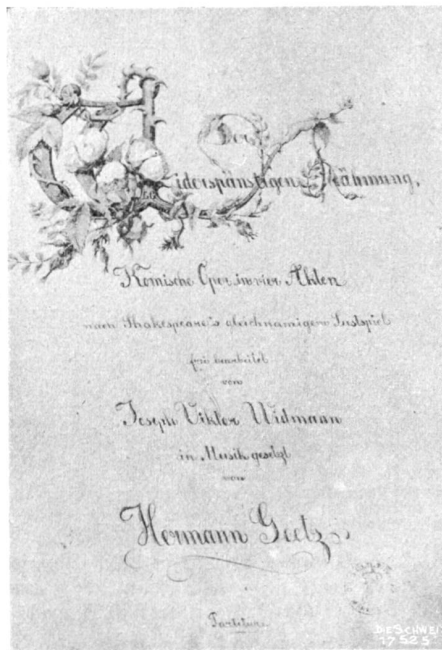 Der
Widerspänstigen Zähmung.
Komische Oper in vier Akten
nach Shakespeare's gleichnamigem Lustspiel
frei bearbeitet
von
Joseph Viktor Widmann
in Musik gesetzt
von
Hermann Goetz.
Partitur.
DIE SCHWEIZ
17525